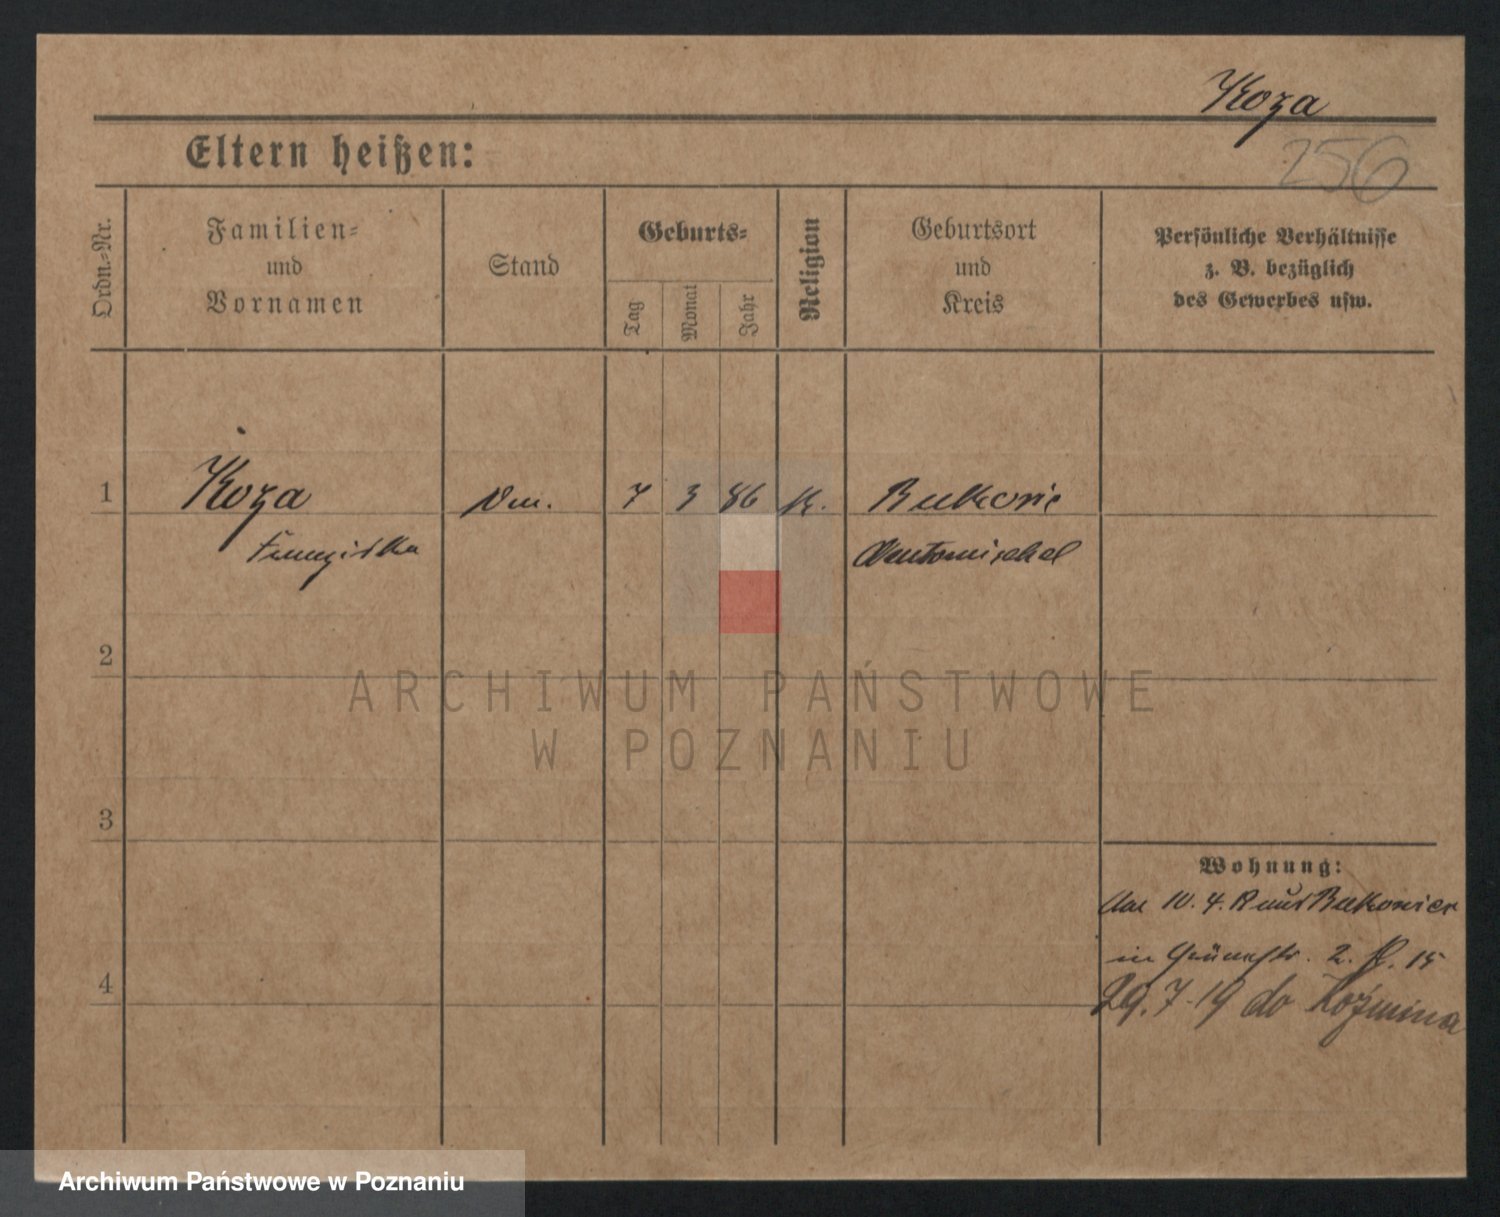 Koza
256
Eltern heißen:
Ordn.-Nr.
Familien-
und
Vornamen
Stand
Geburts-
Tag
Monat
Jahr
Religion
Geburtsort
und
Kreis
Persönliche Verhältnisse
z. B. bezüglich
des Gewerbes usw.
1
Koza
7 3 86 k.
Franziska
2
3
4
Wohnung:
10. 4.
in Grünestr. 2. 15
29.7-19 do Koźmina
ARCHIWUM PAŃSTWOWE
W POZNANIU
Archiwum Państwowe w Poznaniu